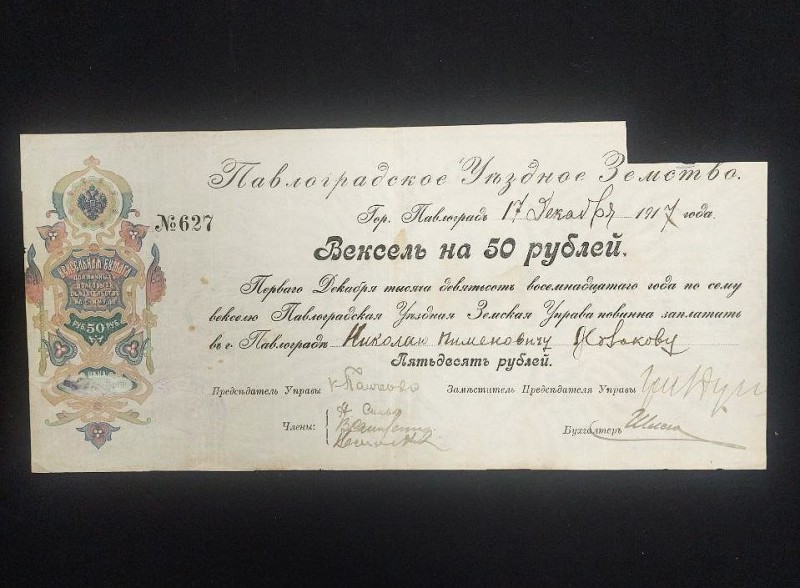 Павлоградское Уѣздное Земство.
Гор. Павлоградъ 17 Декабря 1917 года.
№ 627
Вексель на 50 рублей.
ВЕКСЕЛЬНАЯ БУМАГА
РУБ. 50 РУБ.
Перваго Декабря тысяча девятьсотъ восемнадцатаго года по сему
векселю Павлоградская Уѣздная Земская Управа повинна заплатить
въ г. Павлоградѣ Николаю Пименовичу
Пятьдесятъ рублей.
Предсѣдатель Управы
Замѣститель Предсѣдателя Управы
Члены:
Бухгалтеръ